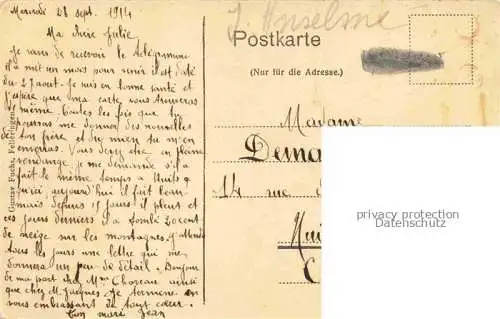 Mercredi 28 sept. 1914
Ma chère Julie
Je viens de recevoir le télégramme
il a mit un mois pour venir il est daté
du 27 aout. Je suis en bonne santé et
j'espère que ma carte vous trouveras
de même. Toutes les fois que tu
pourras me donner des nouvelles
de ton frère et du mien tu m'en
enverras. Vous devez être en pleine
vendange je me demande s'il a
fait le même temps a Nuits
qu'ici aujourd'hui il fait beau
mais depuis 15 jours il pleut et
ces jours derniers il a tombé 20 cent
de neige sur les montagnes. J'attends
tous les jours une lettre qui me
donnera un peu de détail. Bonjour
de ma part chez Mme Choreau ainsi
que chez M. Jacques. Je termine en
vous embrassant de tout cœur.
Ton mari Jean
Gustav Fuchs, Felleringen
J. Anselme
Postkarte
(Nur für die Adresse.)
Madame
14 rue
privacy protection
Datenschutz